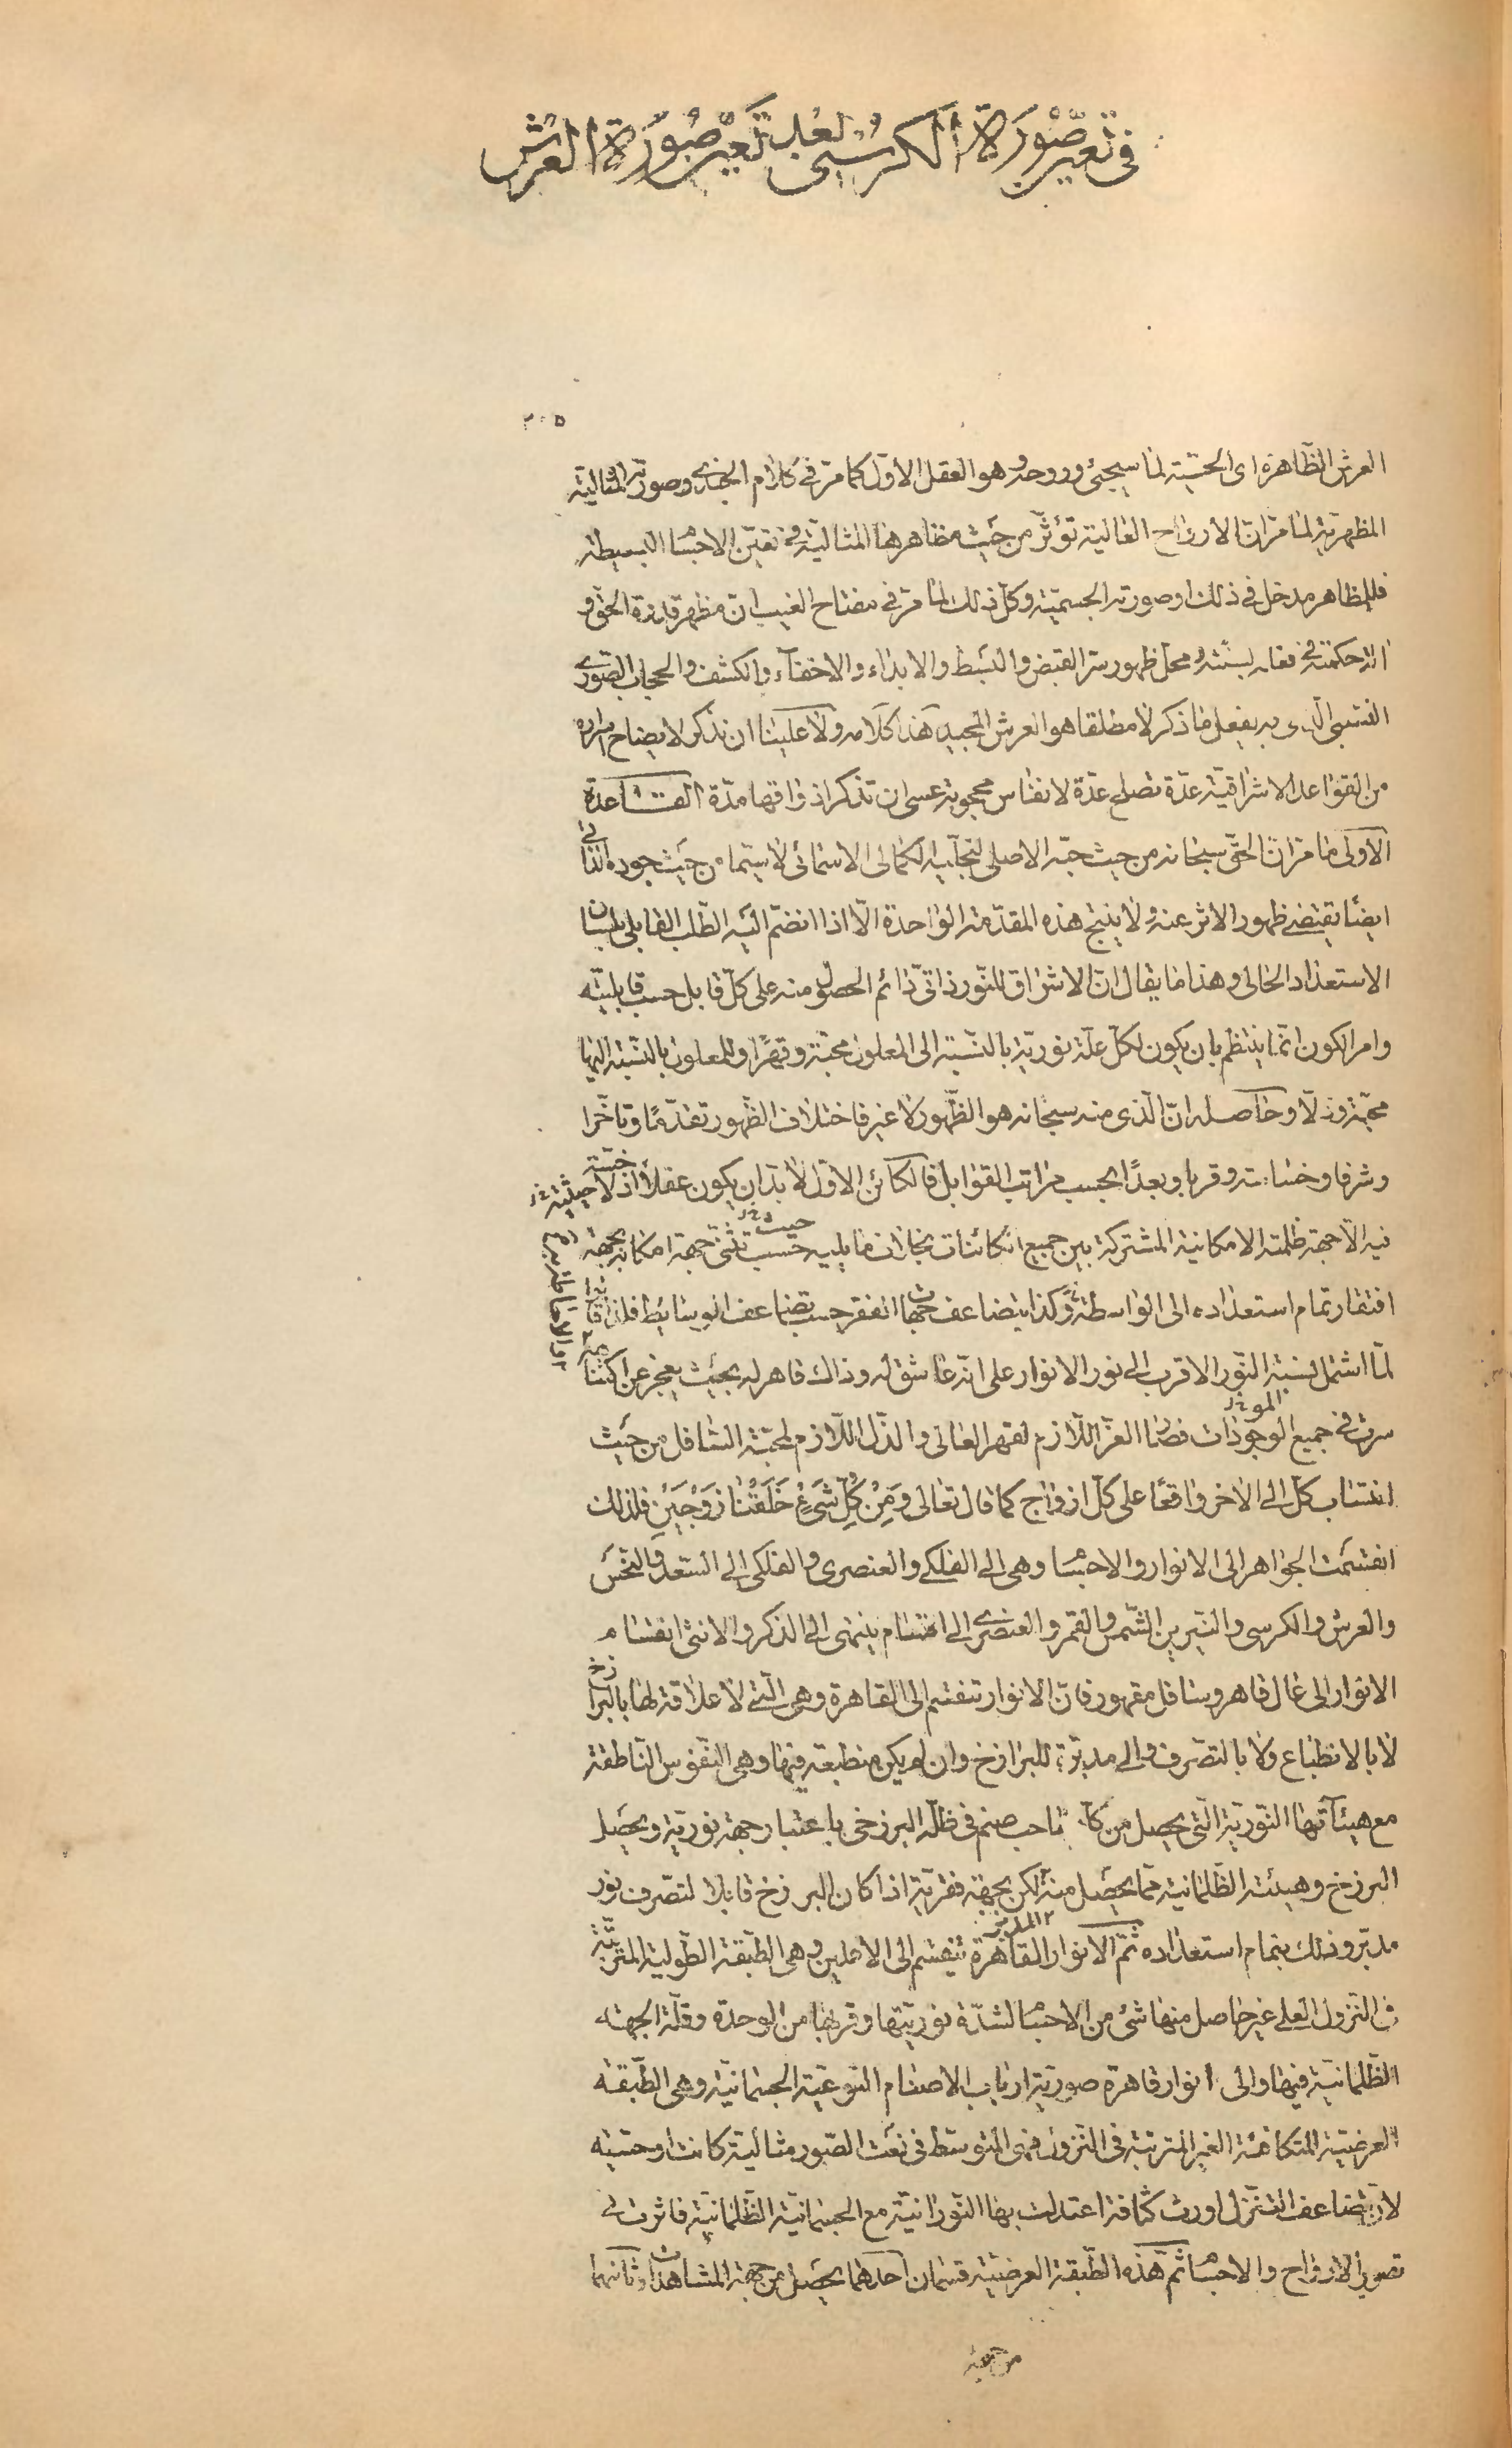 في تعين صورة الكرسي بعد تعين صورة العرش
٢٠٥
العرش الظاهرة اى الحسّية لما سيجئ وروحه وهو العقل الاوّل كما مرّ في كلام الجندى وصورته المثالية
المظهرية لما مرّ انّ الارواح العالية تؤثّر من حيث مظاهرها المثاليّة في تعيّن الاجسام البسيطة
فللمظاهر مدخل في ذلك او صورته الجسميّة وكلّ ذلك لما مرّ في مفتاح الغيب ان مظهر قدرة الحقّ و
حكمته في فعله بسنّته ومحل ظهور سرّ القبض والبسط والابداء والاخفآء والكشف والحجاب الصّورى
النسبي الّذى به يفعل ما ذكر لا مطلقا هو العرش المجيد هذا كلامه ولا علينا ان نذكر لايضاح اسراره
من القواعد الاشراقيّة عدّة تصلح عدّة لانفاس محجوبة عسى ان تذكر اذواقها مدّة القاعدة
الاولى ما مرّ انّ الحقّ سبحانه من حيث حبّه الاصلى لتجلّيه الكمالى الاسمائى لا سيّما من حيث جوده الذاتى
ايضًا يقتضى ظهور الاثر عنه ولا ينتج هذه المقدّمة الواحدة الّا اذا انضمّ اليه الطّلب القابلى بلسان
الاستعداد الحالى وهذا ما يقال انّ الاشراق للنّور ذاتىّ دائم الحصول منه على كلّ قابل حسب قابليّته
وامر الكون انّما ينتظم بان يكون لكلّ علّة نوريّة بالنّسبة الى المعلول محبّة وقهرًا وللمعلول بالنّسبة اليها
محبّة وذلّا وحاصله انّ الّذى منه سبحانه هو الظّهور لا غير فاختلاف الظّهور تقدّمًا وتأخّرا
وشرفا وخساسة وقربا وبعدًا بحسب مراتب القوابل فالكائن الاوّل لابدّ ان يكون عقلًا اذ لا حيثيّة
فيه الّا جهة ظلمته الامكانية المشتركة بين جميع الكائنات بخلاف ما يليه حسب تثنّى جهة امكانه بجهة
افتقار تمام استعداده الى الواسطة وكذا يتضاعف جهات الفقر حسب تضاعف الوسائط
لمّا اشتمل نسبة النّور الاقرب الى نور الانوار على انّه عاشق له وذاك قاهر له بحيث يعجز عن
سرت في جميع الموجودات فصار العزّ اللّازم لقهر العالى والذّل اللّازم لمحبّة السّافل من حيث
انتساب كلّ الى الاخر واقعًا على كلّ ازواج كما قال تعالى وَمِنْ كُلِّ شَىْءٍ خَلَقْنَا زَوْجَيْنِ فلذلك
انقسمت الجواهر الى الانوار والاجسام وهى الى الفلكى والعنصرى والفلكى الى السّعد والنّحس
والعرش والكرسى والنّيرين الشّمس والقمر والعنصرى الى اقسام ينتهى الى الذكر والانثى انقسام
الانوار الى عال قاهر وسافل مقهور فانّ الانوار تنقسم الى القاهرة وهى الّتى لا علاقة لها بالبرازخ
لا بالانطباع ولا بالتصّرف والى مدبّرة للبرازخ وان لم يكن منطبعة فيها وهى النّفوس النّاطقة
مع هيئآتها النّوريّة الّتى يحصل من كلّ صاحب صنم في ظلّه البرزخى باعتبار جهة نوريّة ويحصل
البرزخ وهيئته الظّلمانية ممّا يحصل منه لكن بجهة فقريّة اذا كان البرزخ قابلا لتصّرف نور
مدبّر وذلك بتمام استعداده ثمّ الانوار القاهرة تنقسم الى الاعلين وهى الطّبقة الطّولية المترتّبة
في النّزول العلى غير حاصل منها شئ من الاجسام لشدّة نوريّتها وقربها من الوحدة وقلّة الجهة
الظّلمانيّة فيها والى انوار قاهرة صوريّة ارباب الاصنام النّوعيّة الجسمانيّة وهى الطّبقة
العرضيّة المتكافئة الغير المترتبة في النّزول فهى المتوسّط في نعت الصّور مثالية كانت او حسّية
لان تضاعف التّنزّل اورث كثافة اعتدلت بها النّورانيّة مع الجسمانيّة الظّلمانيّة فاثرت فى
تصوير الارواح والاجسام ثمّ هذه الطّبقة العرضيّة قسمان احدهما يحصل من جهة المشاهدات وثانيهما
من جهة